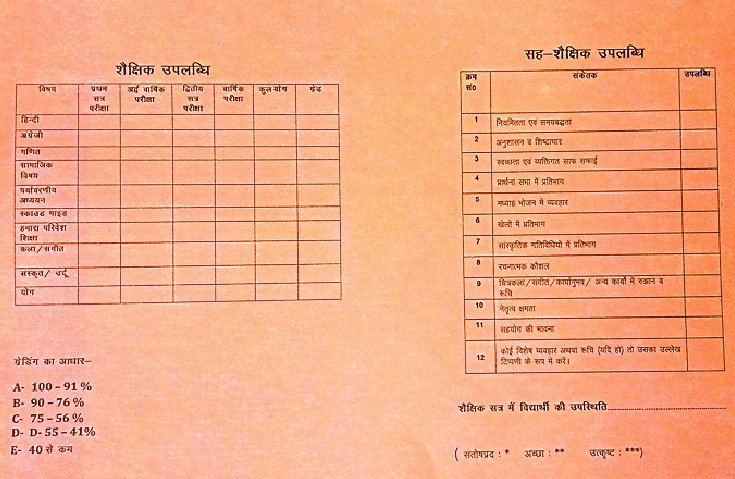 शैक्षिक उपलब्धि
विषय प्रथम सत्र परीक्षा अर्द्ध वार्षिक परीक्षा द्वितीय सत्र परीक्षा वार्षिक परीक्षा कुल योग ग्रेड
हिन्दी
अंग्रेजी
गणित
सामाजिक
विषय
पर्यावरणीय
अध्ययन
स्काउड गाइड
हमारा परिवेश
शिक्षा
कला/संगीत
संस्कृत/ उर्दू
योग
ग्रेडिंग का आधार–
A- 100 – 91 %
B- 90 – 76 %
C- 75 – 56 %
D- D- 55 – 41%
E- 40 से कम
सह–शैक्षिक उपलब्धि
क्रम सं० संकेतक उपलब्धि
1 नियमितता एवं समयबद्धता
2 अनुशासन व शिष्टाचार
3 स्वच्छता एवं व्यक्तिगत साफ सफाई
4 प्रार्थना सभा में प्रतिभाग
5 मध्याह्न भोजन में व्यवहार
6 खेलों में प्रतिभाग
7 सांस्कृतिक गतिविधियों में प्रतिभाग
8 रचनात्मक कौशल
9 चित्रकला/संगीत/कार्यानुभव/ अन्य कार्यों में रुझान व
रूचि
10 नेतृत्व क्षमता
11 सहयोग की भावना
12 कोई विशेष व्यवहार अथवा रूचि (यदि हो) तो उसका उल्लेख
टिप्पणी के रूप में करें।
शैक्षिक सत्र में विद्यार्थी की उपस्थिति..............................
( संतोषप्रद : * अच्छा : ** उत्कृष्ट : ***)